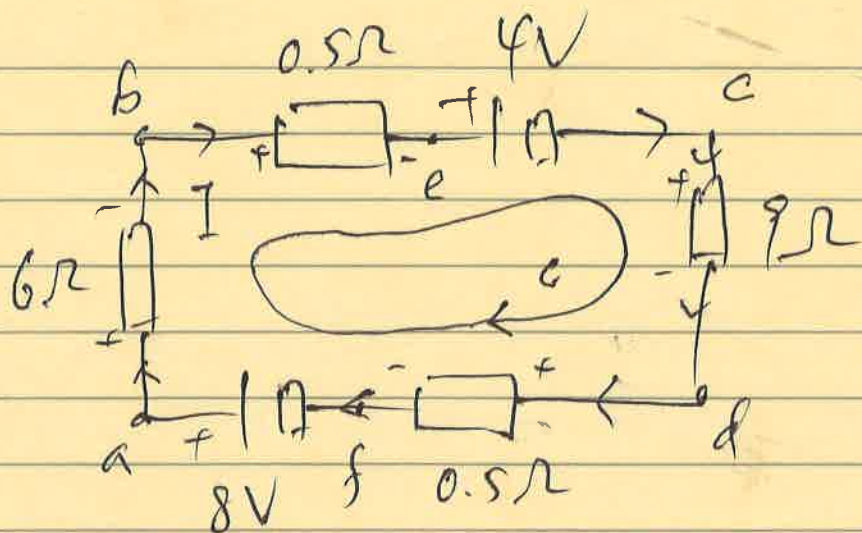 0.5Ω 4V
b c
+ - e +
- I +
6Ω 9Ω
c -
+
- +
a + f d
8V 0.5Ω -